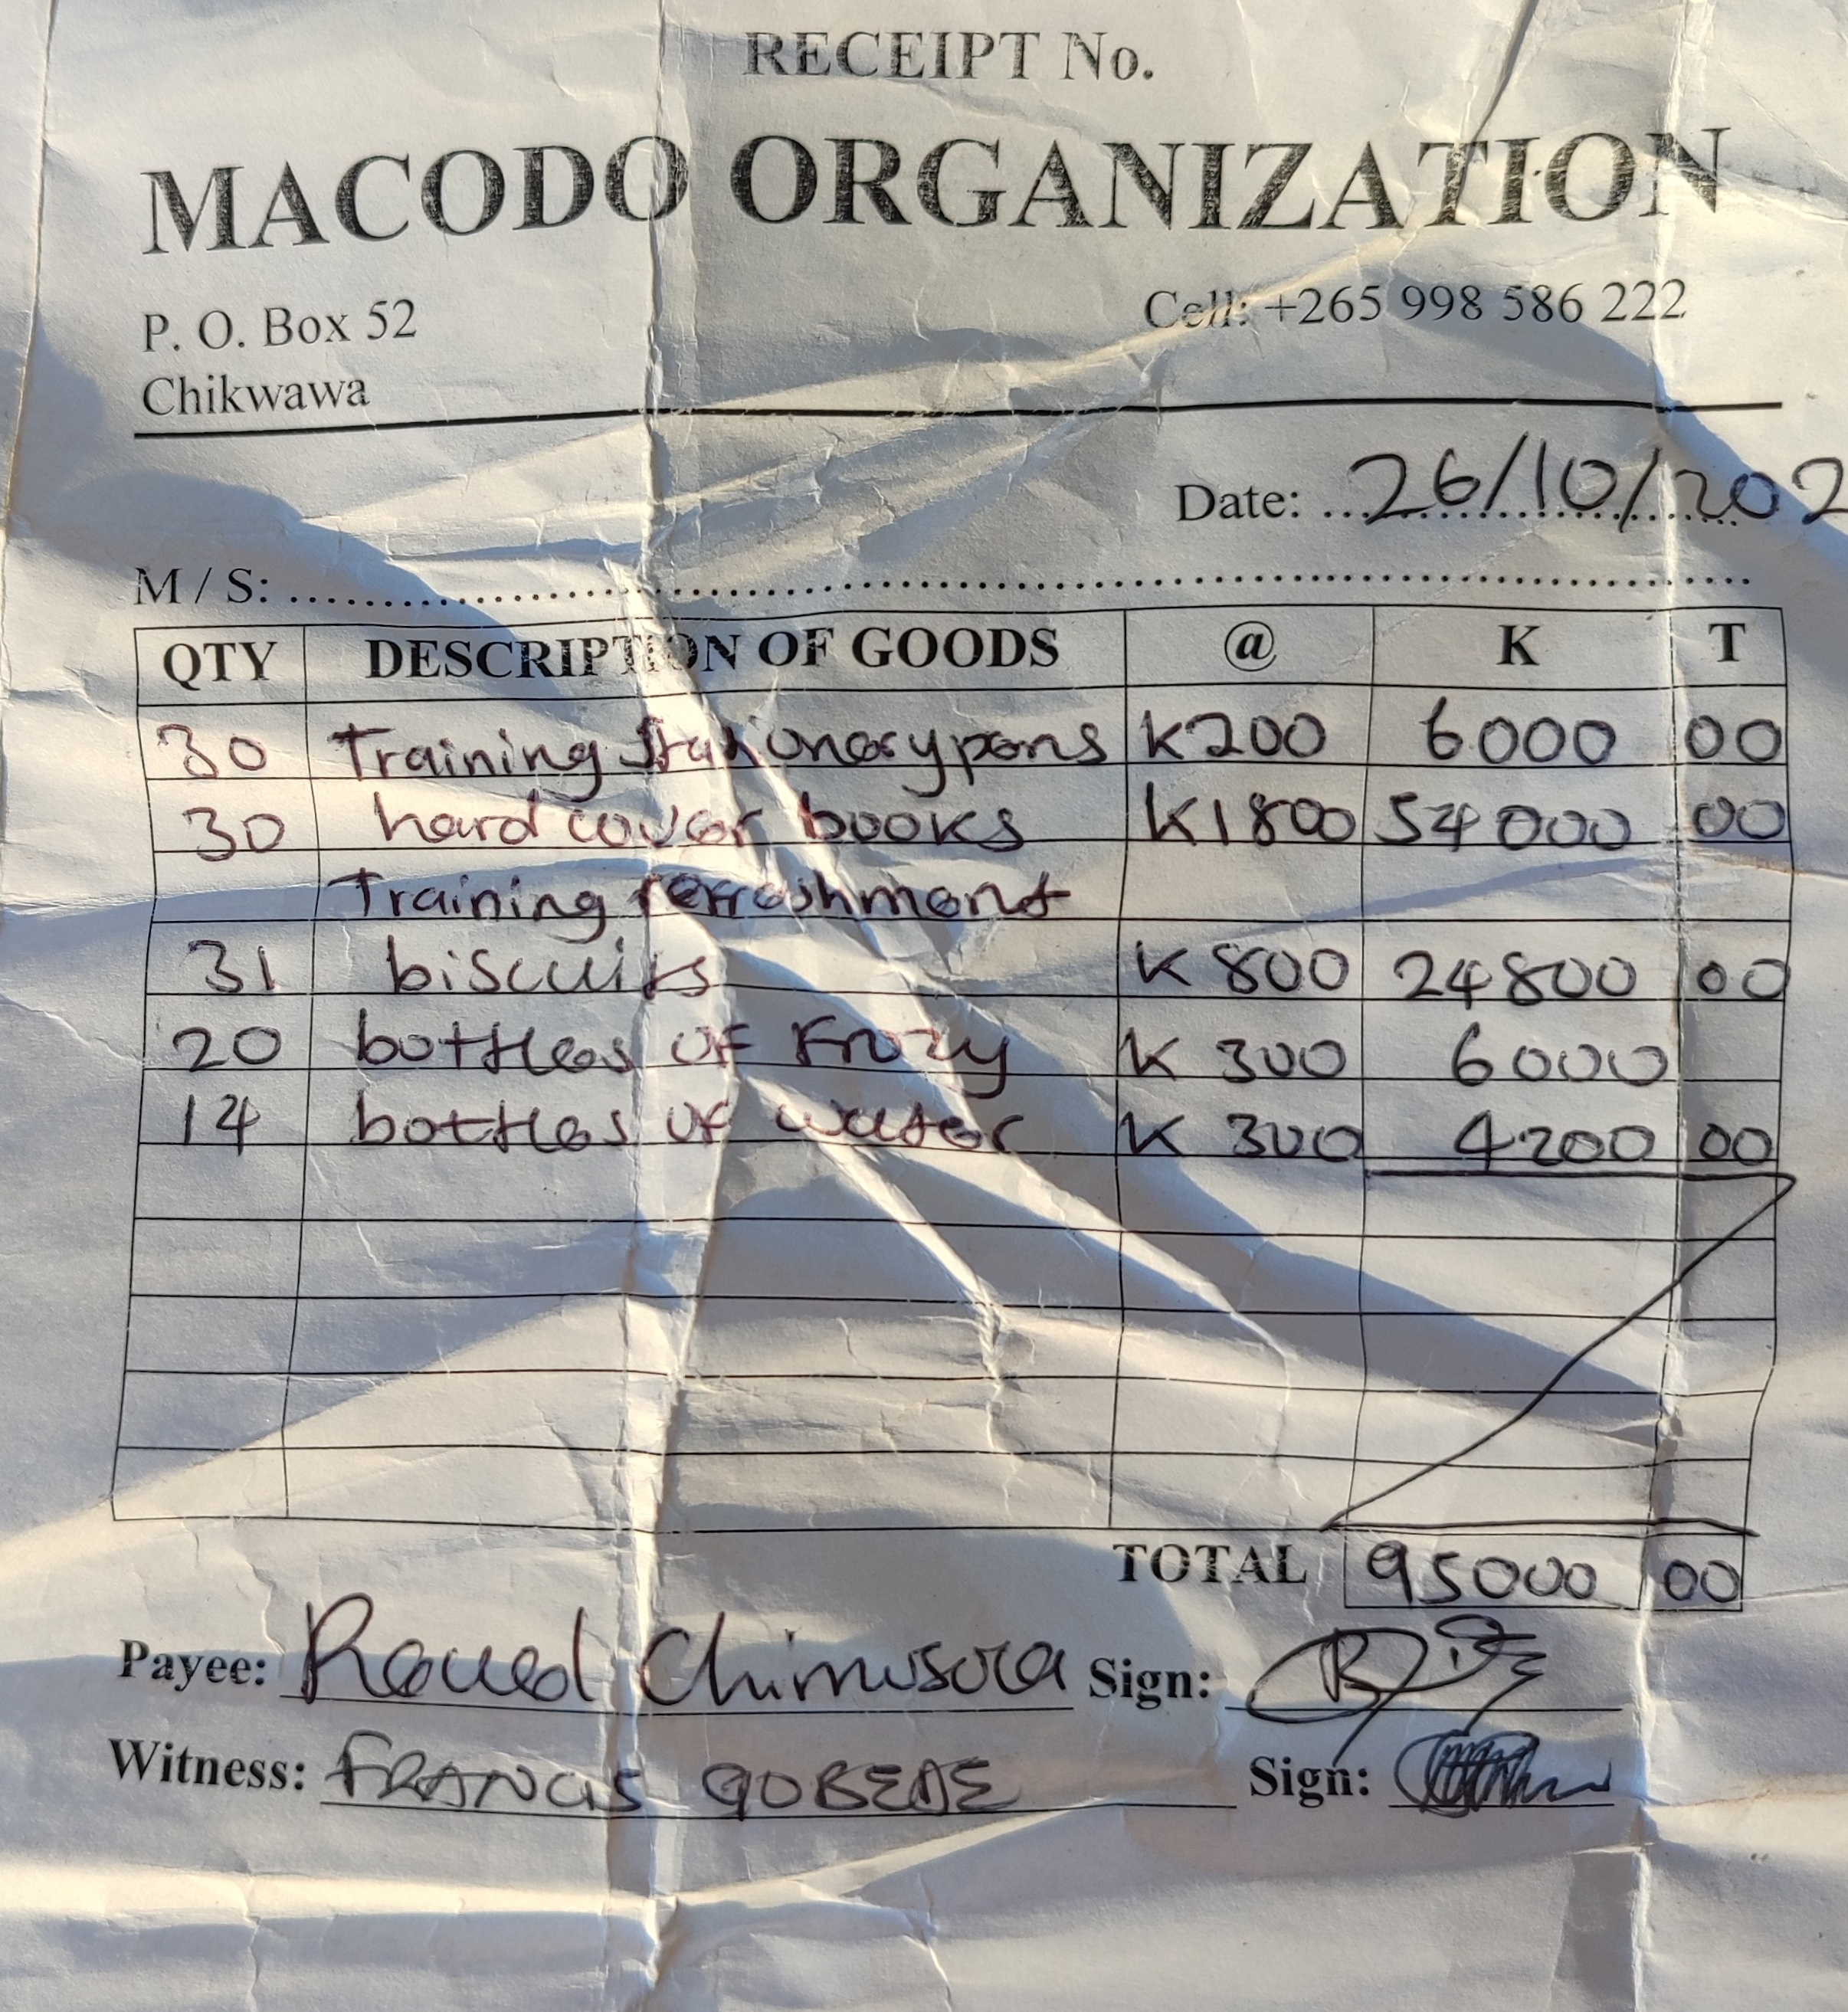 RECEIPT No.
MACODO ORGANIZATION
P. O. Box 52 Cell: +265 998 586 222
Chikwawa
Date: 26/10/202
M / S:
QTY DESCRIPTION OF GOODS @ K T
30 Training Stationery pens K200 6000 00
30 hard cover books K1800 54000 00
Training refreshment
31 biscuits K 800 24800 00
20 bottles of Frozy K 300 6000
14 bottles of water K 300 4200 00
TOTAL 95000 00
Payee: Sign:
Witness: FRANCIS Sign: